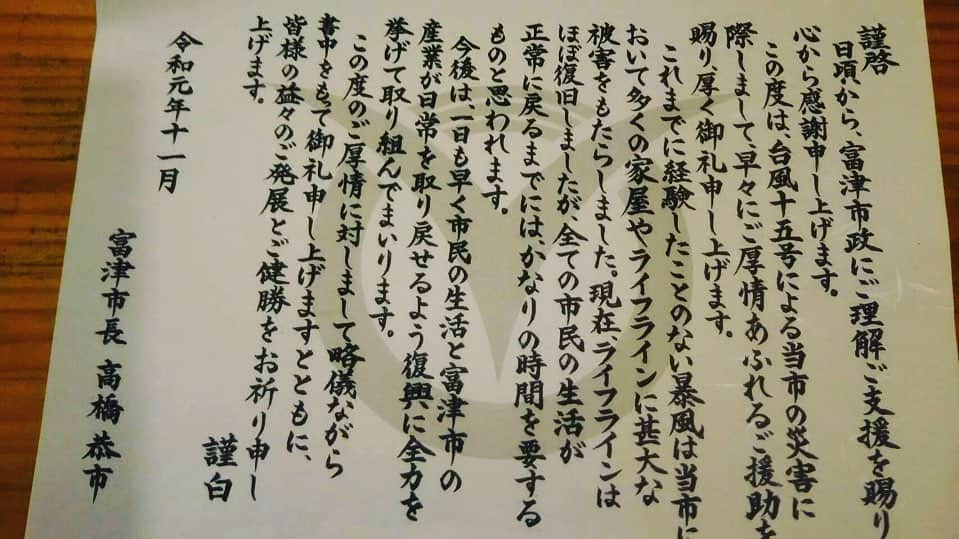 謹啓
日頃から、富津市政にご理解ご支援を賜り
心から感謝申し上げます。
この度は、台風十五号による当市の災害に
際しまして、早々にご厚情あふれるご援助を
賜り、厚く御礼申し上げます。
これまでに経験したことのない暴風は当市に
おいて多くの家屋やライフラインに甚大な
被害をもたらしました。現在、ライフラインは
ほぼ復旧しましたが、全ての市民の生活が
正常に戻るまでには、かなりの時間を要する
ものと思われます。
今後は、一日も早く市民の生活と富津市の
産業が日常を取り戻せるよう復興に全力を
挙げて取り組んでまいります。
この度のご厚情に対しまして略儀ながら
書中をもって御礼申し上げますとともに、
皆様の益々のご発展とご健勝をお祈り申し
上げます。
謹白
令和元年十一月
富津市長 高橋恭市